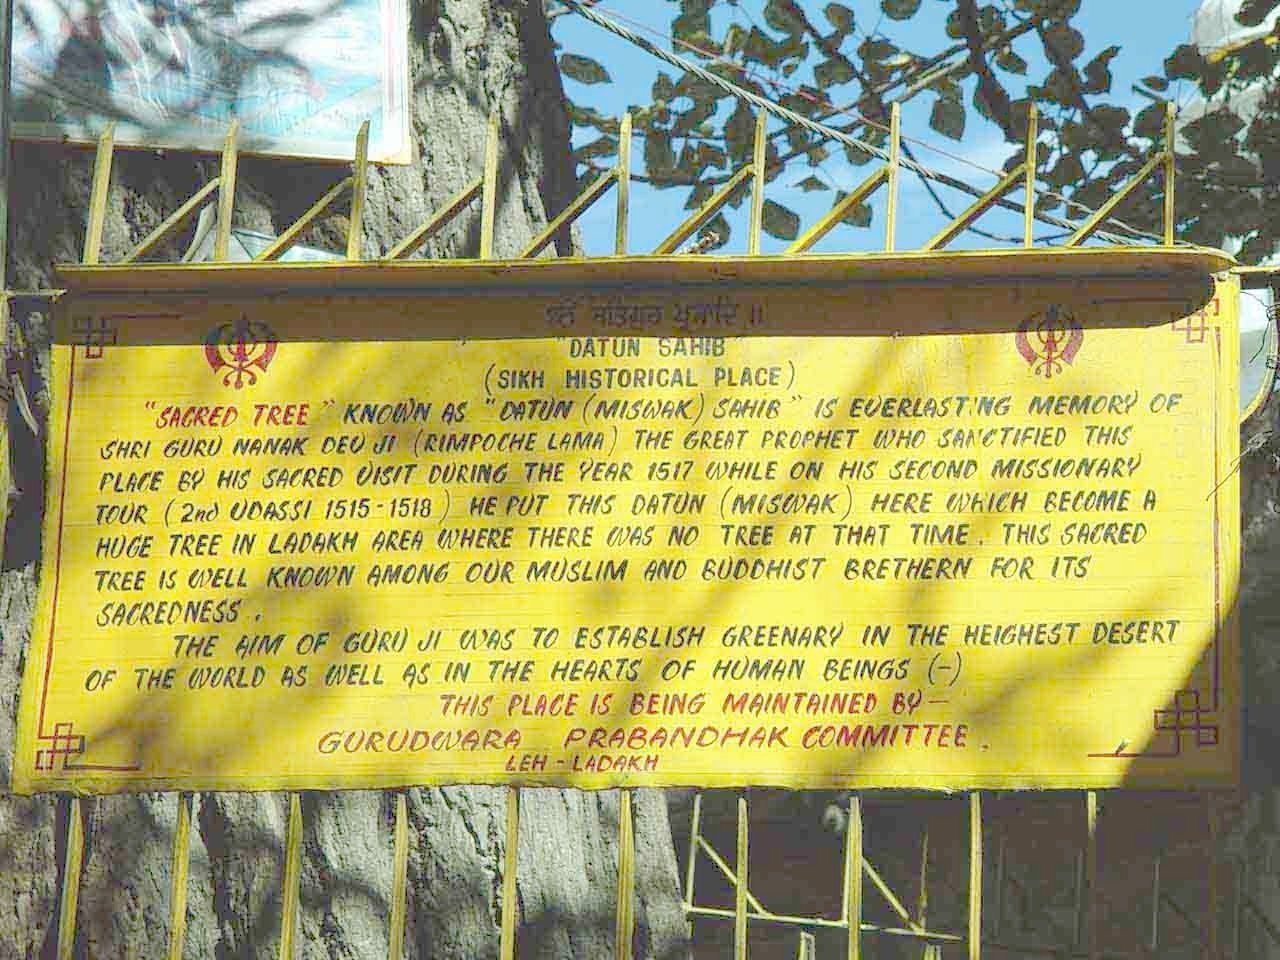 ੴ ਸਤਿਗੁਰ ਪ੍ਰਸਾਦਿ ॥
"DATUN SAHIB"
(SIKH HISTORICAL PLACE)
"SACRED TREE" KNOWN AS "DATUN (MISWAK) SAHIB" IS EVERLASTING MEMORY OF
SHRI GURU NANAK DEV JI (RIMPOCHE LAMA) THE GREAT PROPHET WHO SANCTIFIED THIS
PLACE BY HIS SACRED VISIT DURING THE YEAR 1517 WHILE ON HIS SECOND MISSIONARY
TOUR (2nd UDASSI 1515-1518) HE PUT THIS DATUN (MISWAK) HERE WHICH BECOME A
HUGE TREE IN LADAKH AREA WHERE THERE WAS NO TREE AT THAT TIME. THIS SACRED
TREE IS WELL KNOWN AMONG OUR MUSLIM AND BUDDHIST BRETHERN FOR ITS
SACREDNESS.
THE AIM OF GURU JI WAS TO ESTABLISH GREENARY IN THE HEIGHEST DESERT
OF THE WORLD AS WELL AS IN THE HEARTS OF HUMAN BEINGS (-)
THIS PLACE IS BEING MAINTAINED BY-
GURUDWARA PRABANDHAK COMMITTEE.
LEH - LADAKH